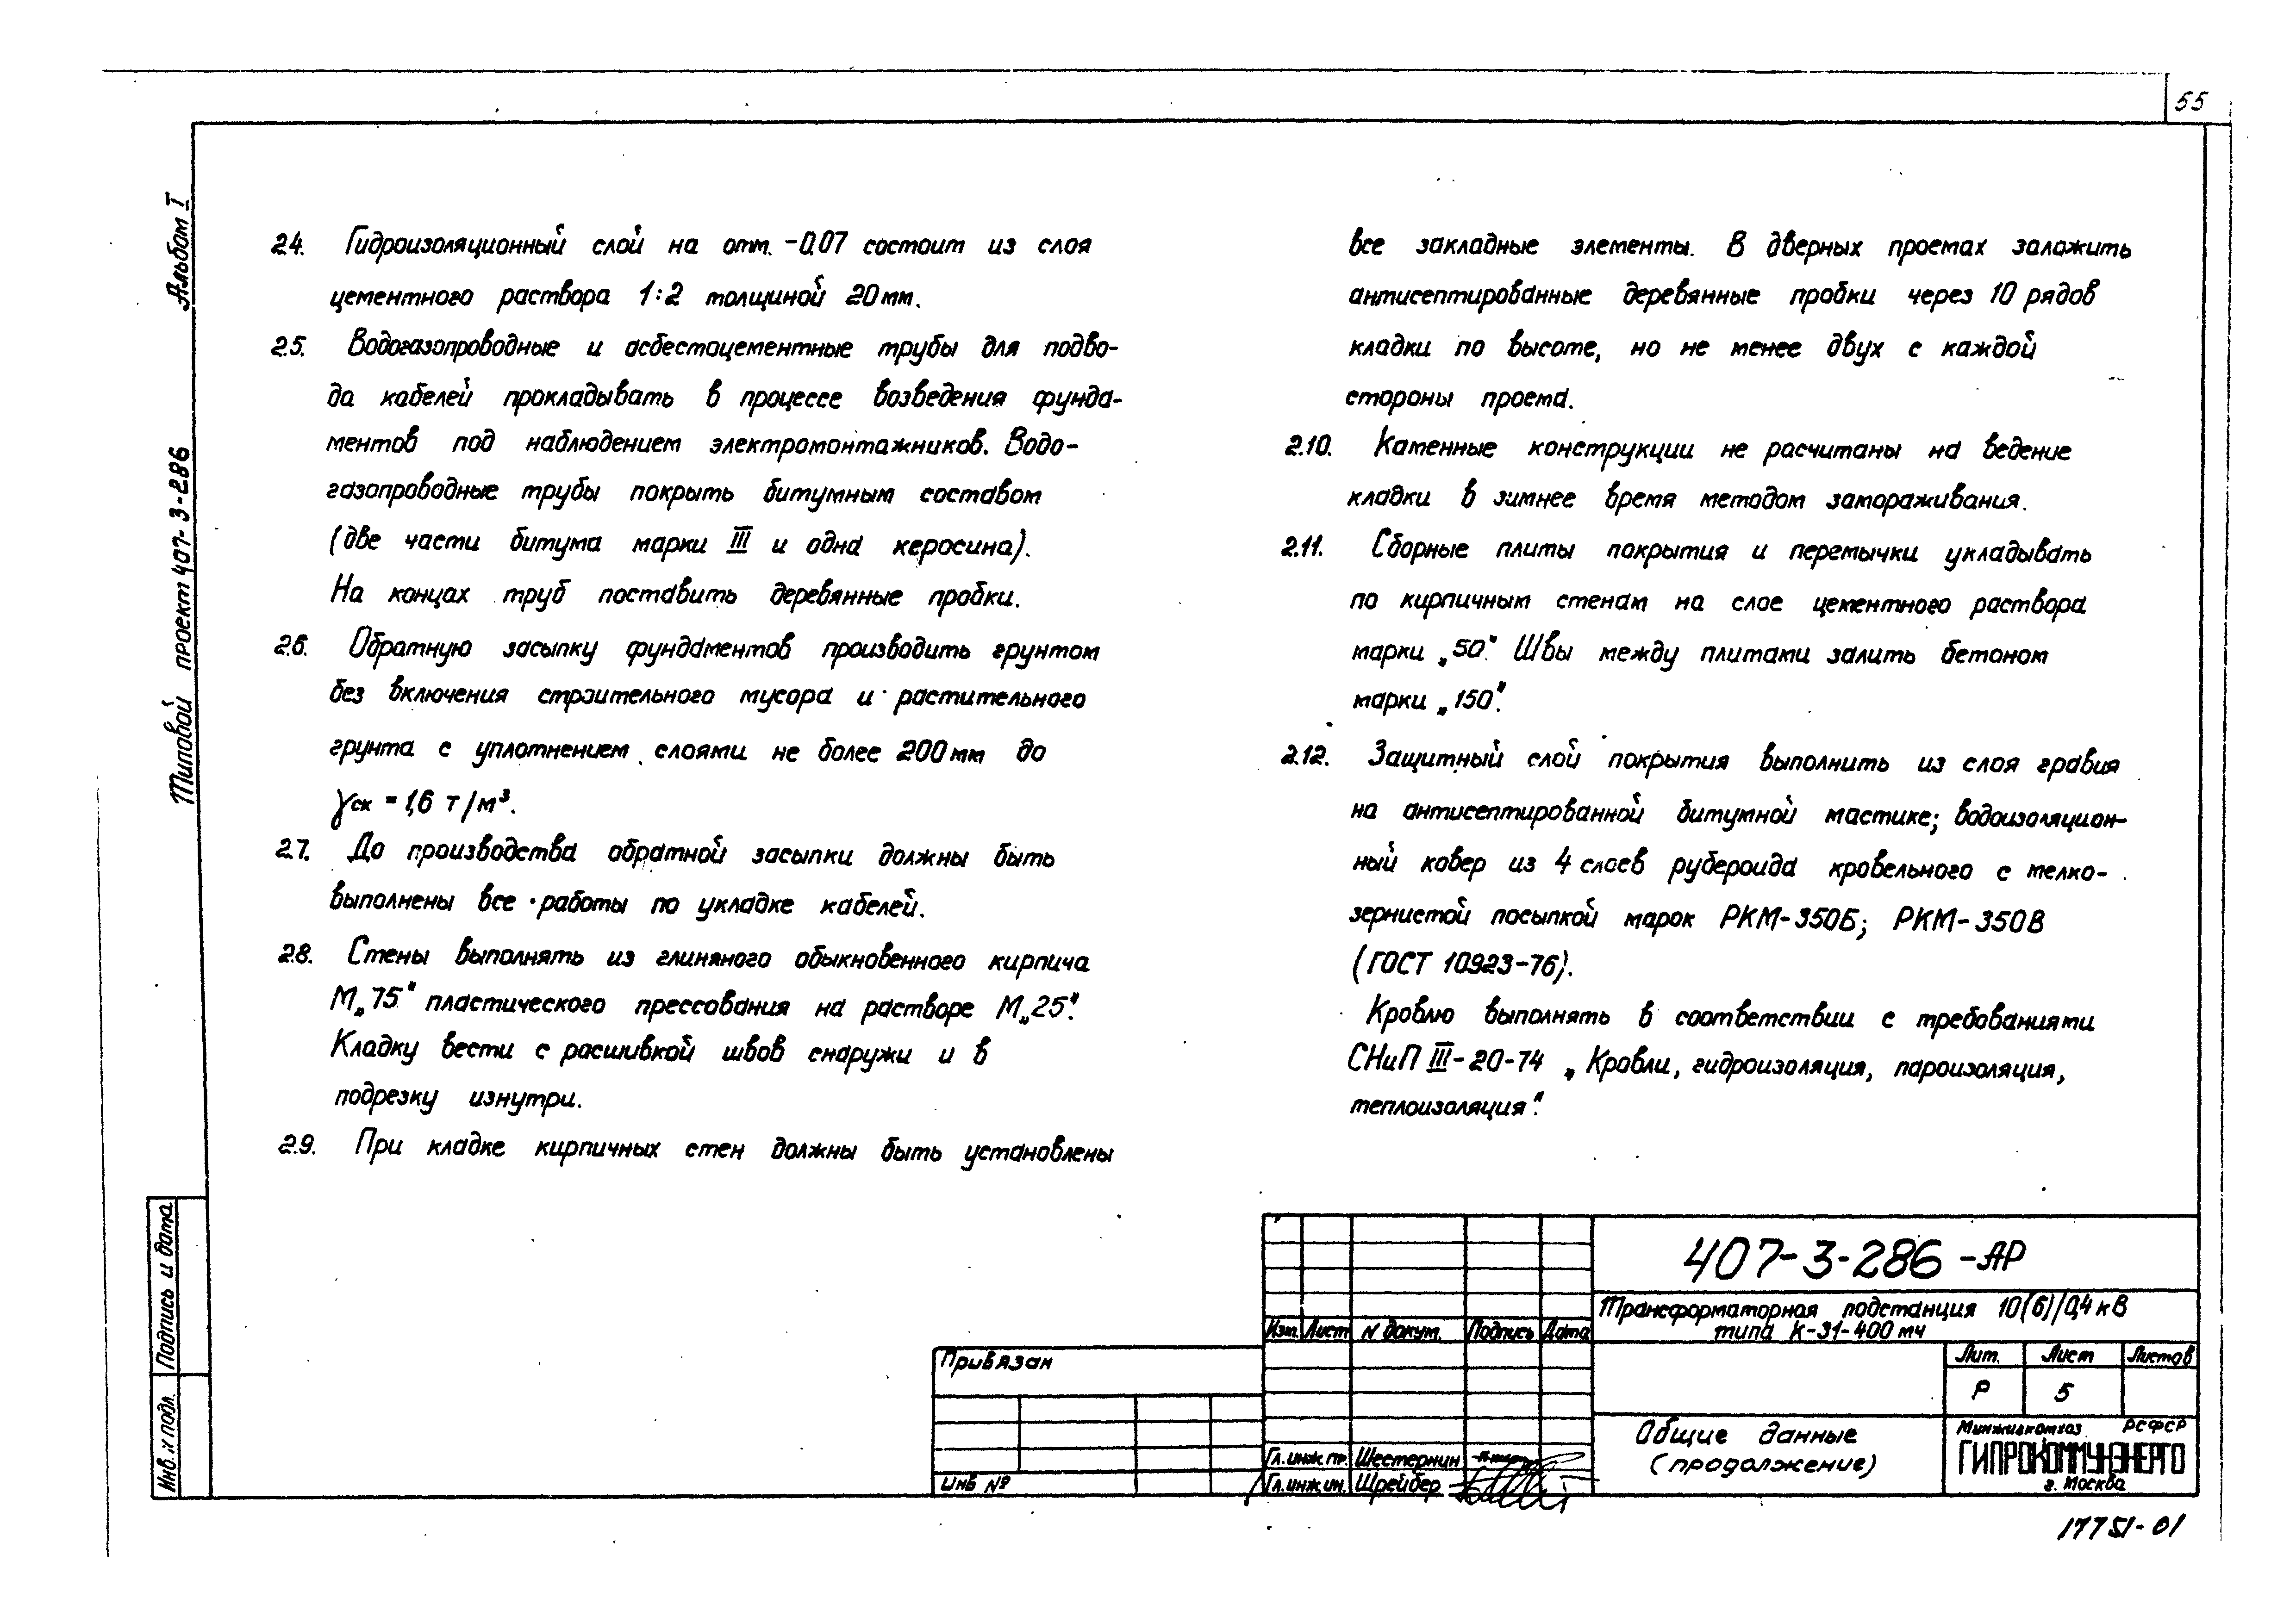 55
Альбом I
Типовой проект 407-3-286
2.4. Гидроизоляционный слой на отм. -0,07 состоит из слоя
цементного раствора 1:2 толщиной 20мм.
2.5. Водогазопроводные и асбестоцементные трубы для подво-
да кабелей прокладывать в процессе возведения фунда-
ментов под наблюдением электромонтажников. Водо-
газопроводные трубы покрыть битумным составом
(две части битума марки III и одна керосина).
На концах труб поставить деревянные пробки.
2.6. Обратную засыпку фундаментов производить грунтом
без включения строительного мусора и растительного
грунта с уплотнением слоями не более 200мм до
γск = 1,6 т/м³.
2.7. До производства обратной засыпки должны быть
выполнены все работы по укладке кабелей.
2.8. Стены выполнять из глиняного обыкновенного кирпича
М„75“ пластического прессования на растворе М„25“.
Кладку вести с расшивкой швов снаружи и в
подрезку изнутри.
2.9. При кладке кирпичных стен должны быть установлены
все закладные элементы. В дверных проемах заложить
антисептированные деревянные пробки через 10 рядов
кладки по высоте, но не менее двух с каждой
стороны проема.
2.10. Каменные конструкции не расчитаны на ведение
кладки в зимнее время методом замораживания.
2.11. Сборные плиты покрытия и перемычки укладывать
по кирпичным стенам на слое цементного раствора
марки „50“. Швы между плитами залить бетоном
марки „150“.
2.12. Защитный слой покрытия выполнить из слоя гравия
на антисептированной битумной мастике; водоизоляцион-
ный ковер из 4 слоев рубероида кровельного с мелко-
зернистой посыпкой марок РКМ-350Б; РКМ-350В
(ГОСТ 10923-76).
Кровлю выполнять в соответствии с требованиями
СНиП III-20-74 „Кровли, гидроизоляция, пароизоляция,
теплоизоляция“.
Подпись и дата
Инв. № подл.
Привязан
Инв №
Изм. Лист N докум. Подпись Дата
Гл. инж. пр. Шестернин
Гл. инж. ин. Шрейбер
407-3-286 -АР
Трансформаторная подстанция 10(6)/0,4 кВ
типа К-31-400 мч
Лит. Лист Листов
Р 5
Общие данные
(продолжение)
Минжилкомхоз РСФСР
ГИПРОКОММУНЭНЕРГО
г. Москва
17751-01